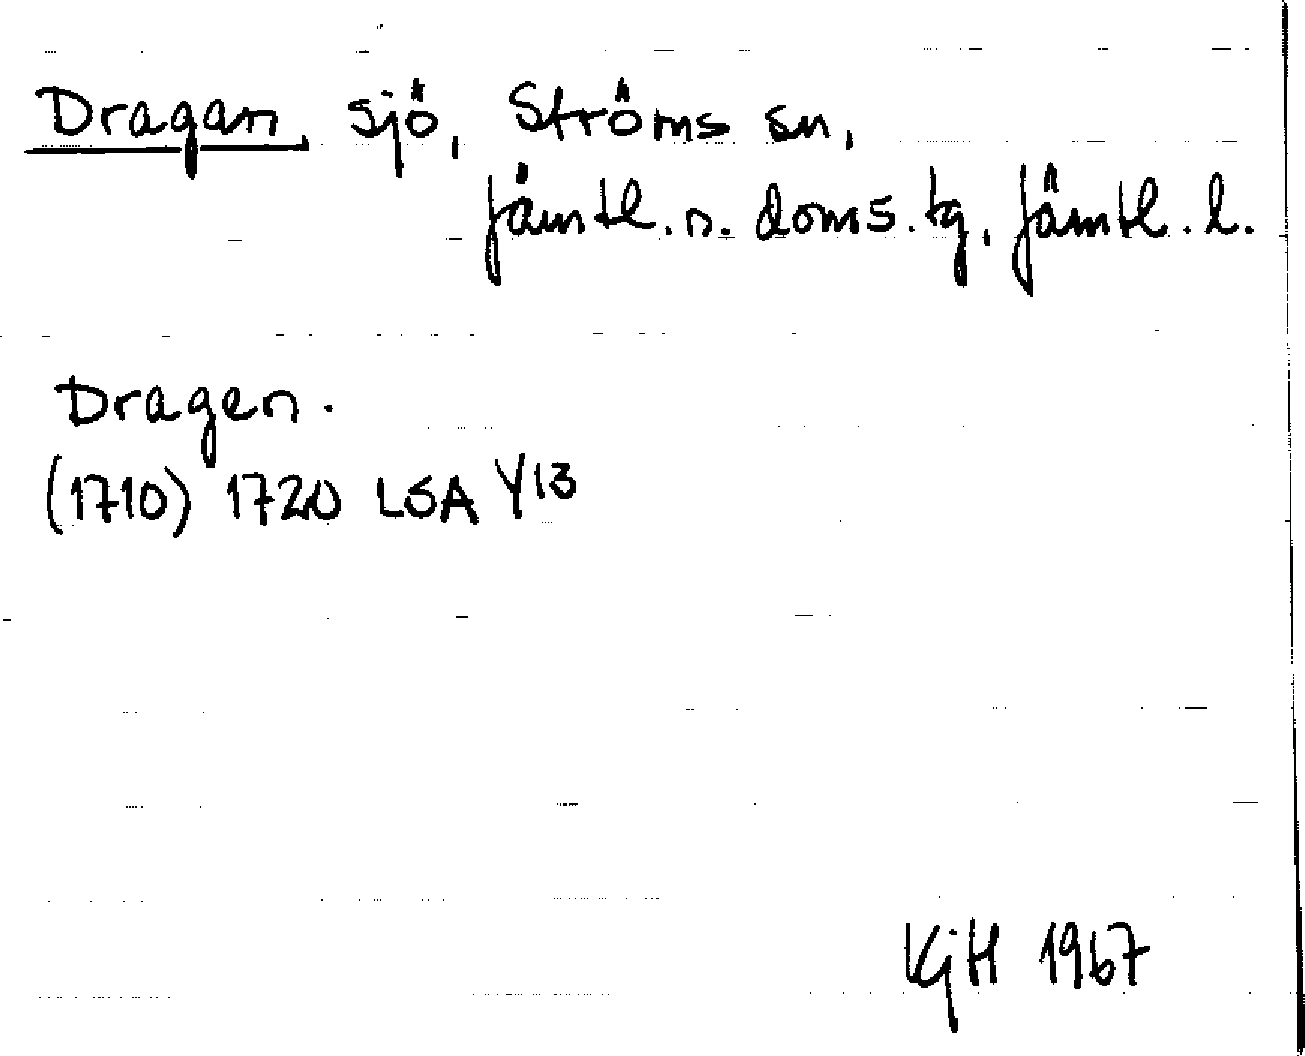 Dragan, sjö, Ströms sn,
Jämtl. n. doms. tg, Jämtl. l.
Dragen.
(1710) 1720 LSA Y13
KjH 1967